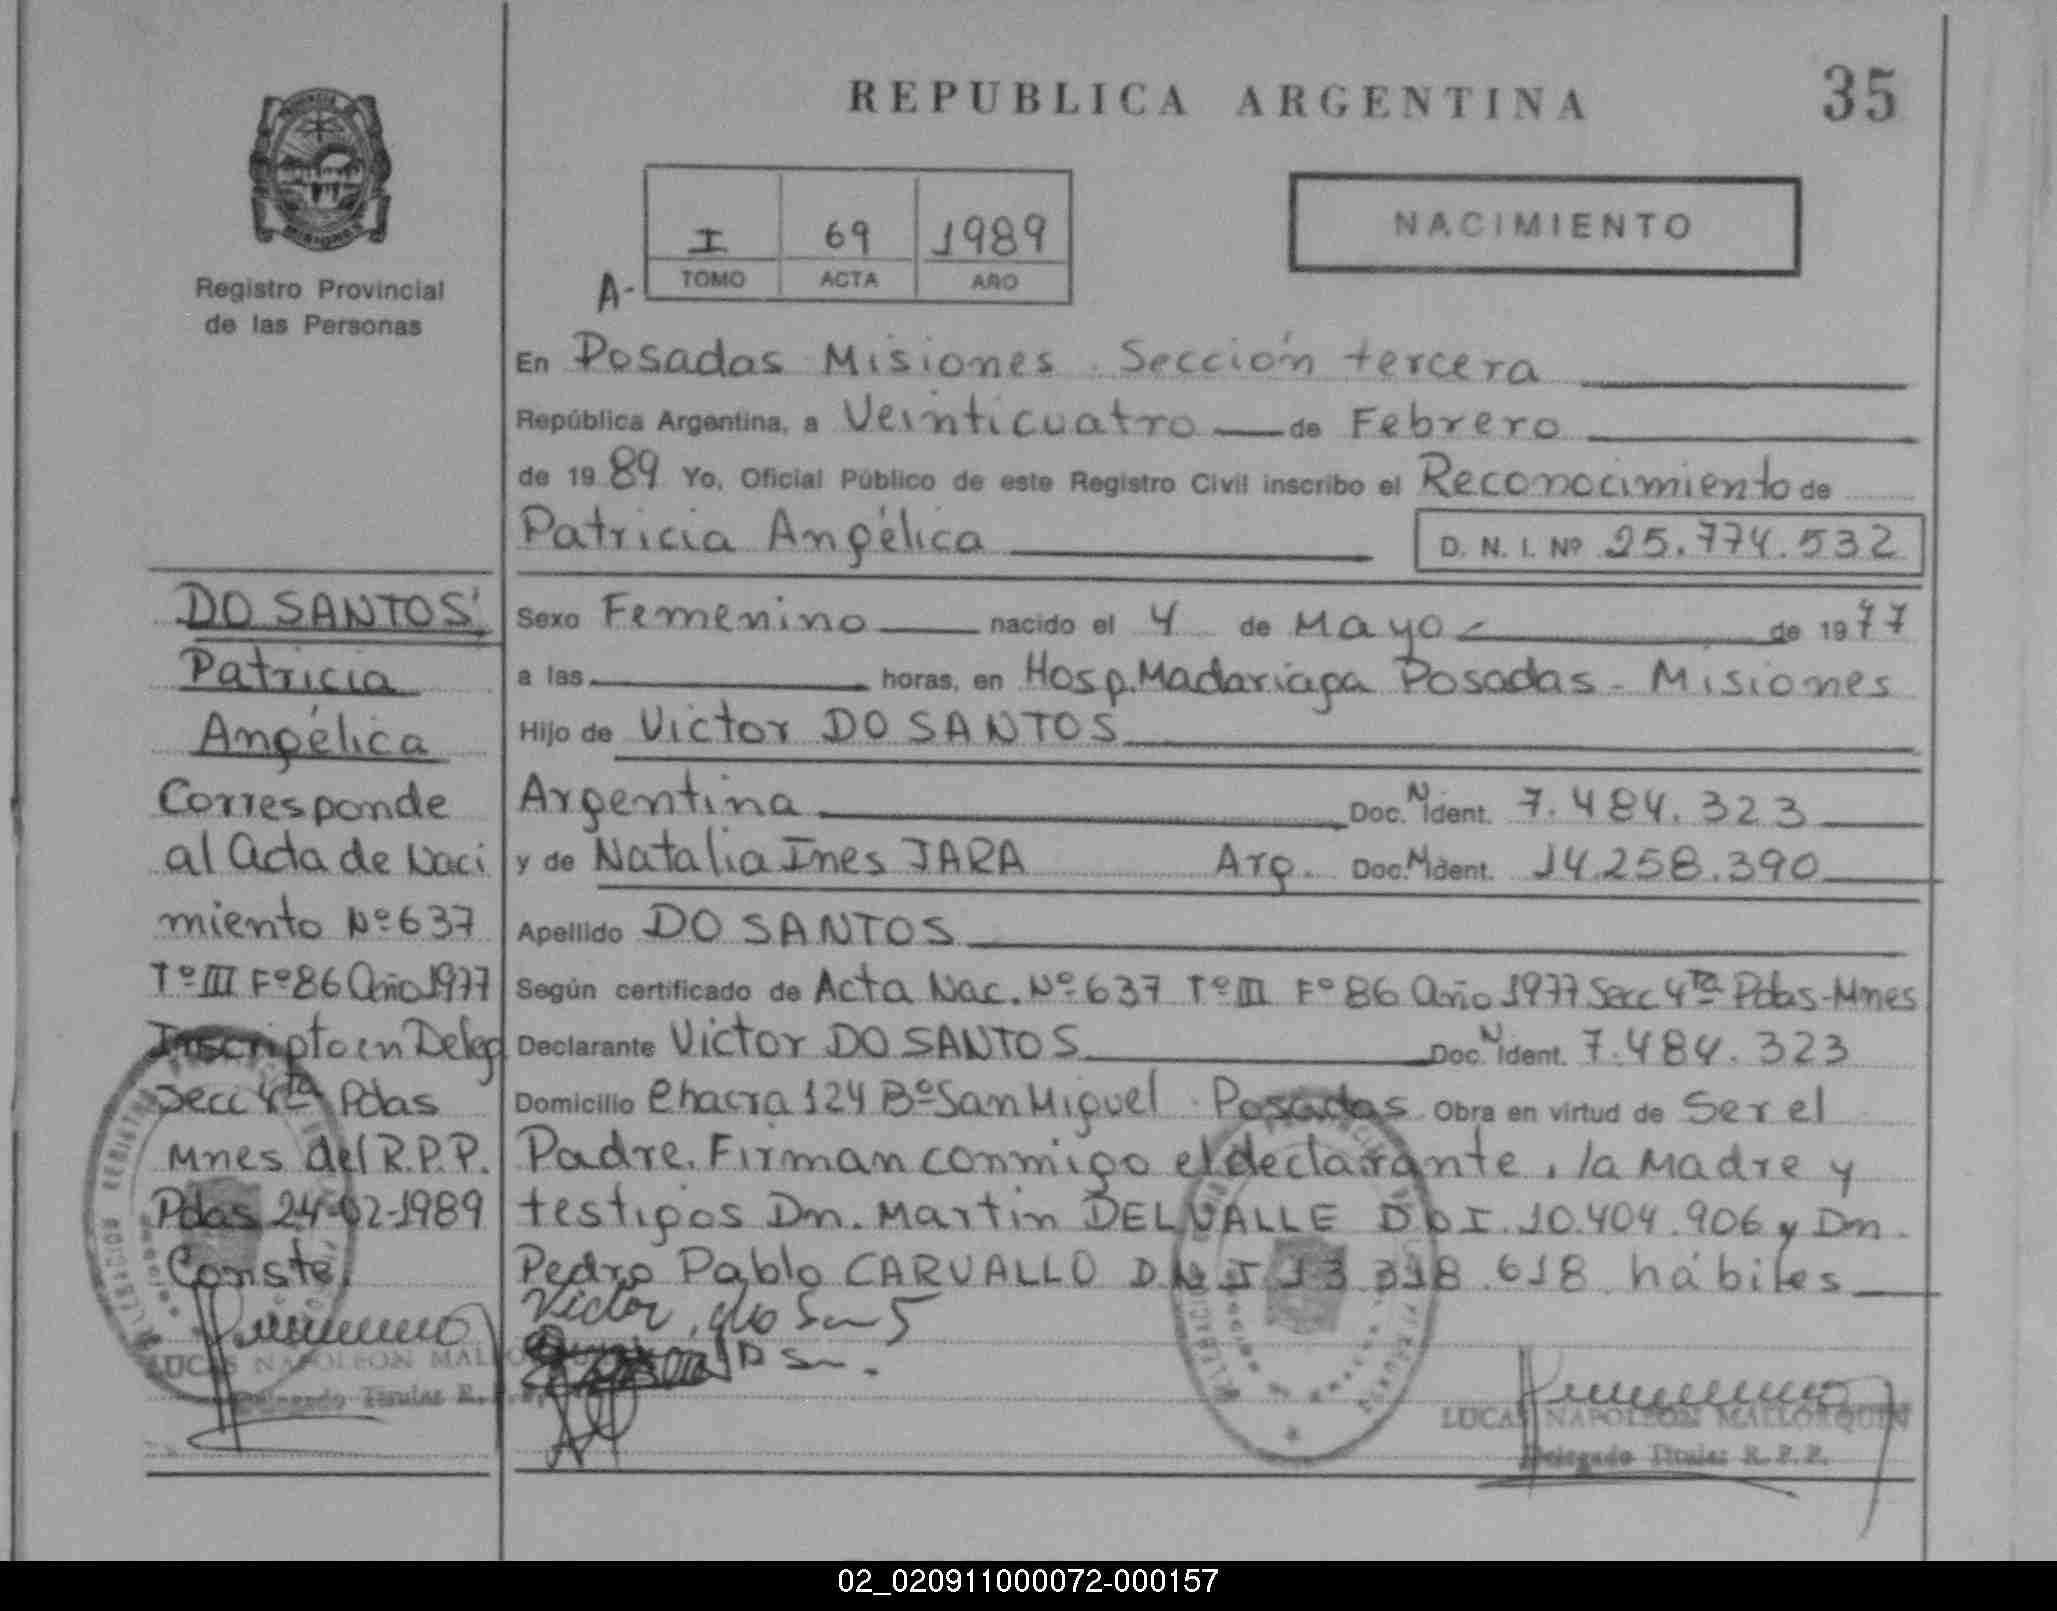 REPUBLICA ARGENTINA
35
NACIMIENTO
I 69 1989
A- TOMO ACTA AÑO
MISIONES
Registro Provincial
de las Personas
En Posadas Misiones. Sección tercera
República Argentina, a Veinticuatro de Febrero
de 19 89 Yo, Oficial Público de este Registro Civil inscribo el Reconocimiento de
Patricia Angélica D. N. I. Nº 25.774.532
Sexo Femenino nacido el 4 de Mayo de 1977
a las horas, en Hosp. Madariaga Posadas - Misiones
Hijo de Victor DO SANTOS
Argentina Doc. N Ident. 7.484.323
y de Natalia Ines JARA Arg. Doc. N Ident. 14.258.390
Apellido DO SANTOS
Según certificado de Acta Nac. Nº 637 Tº III Fº 86 año 1977 Secc 4ta Pdas-Mnes
Declarante Victor DO SANTOS Doc. N Ident. 7.484.323
Domicilio Chacra 124 Bº San Miguel Posadas Obra en virtud de Ser el
Padre. Firman conmigo el declarante, la Madre y
testigos Dn. Martin DELVALLE D N I. 10.404.906 y Dn.
Pedro Pablo CARVALLO D N I 13 318.618 hábiles
Victor, do San S
LUCAS NAPOLEON MALLORQUIN
Delegado Titular R. P. P.
DO SANTOS
Patricia
Angélica
Corresponde
al acta de Naci
miento Nº 637
Tº III Fº 86 año 1977
Inscripto en Deleg
Secc 4ta Pdas
Mnes del R.P.P.
Pdas 24-02-1989
Conste.
LUCAS NAPOLEON MALLO
Delegado Titular R. P. P.
02_020911000072-000157